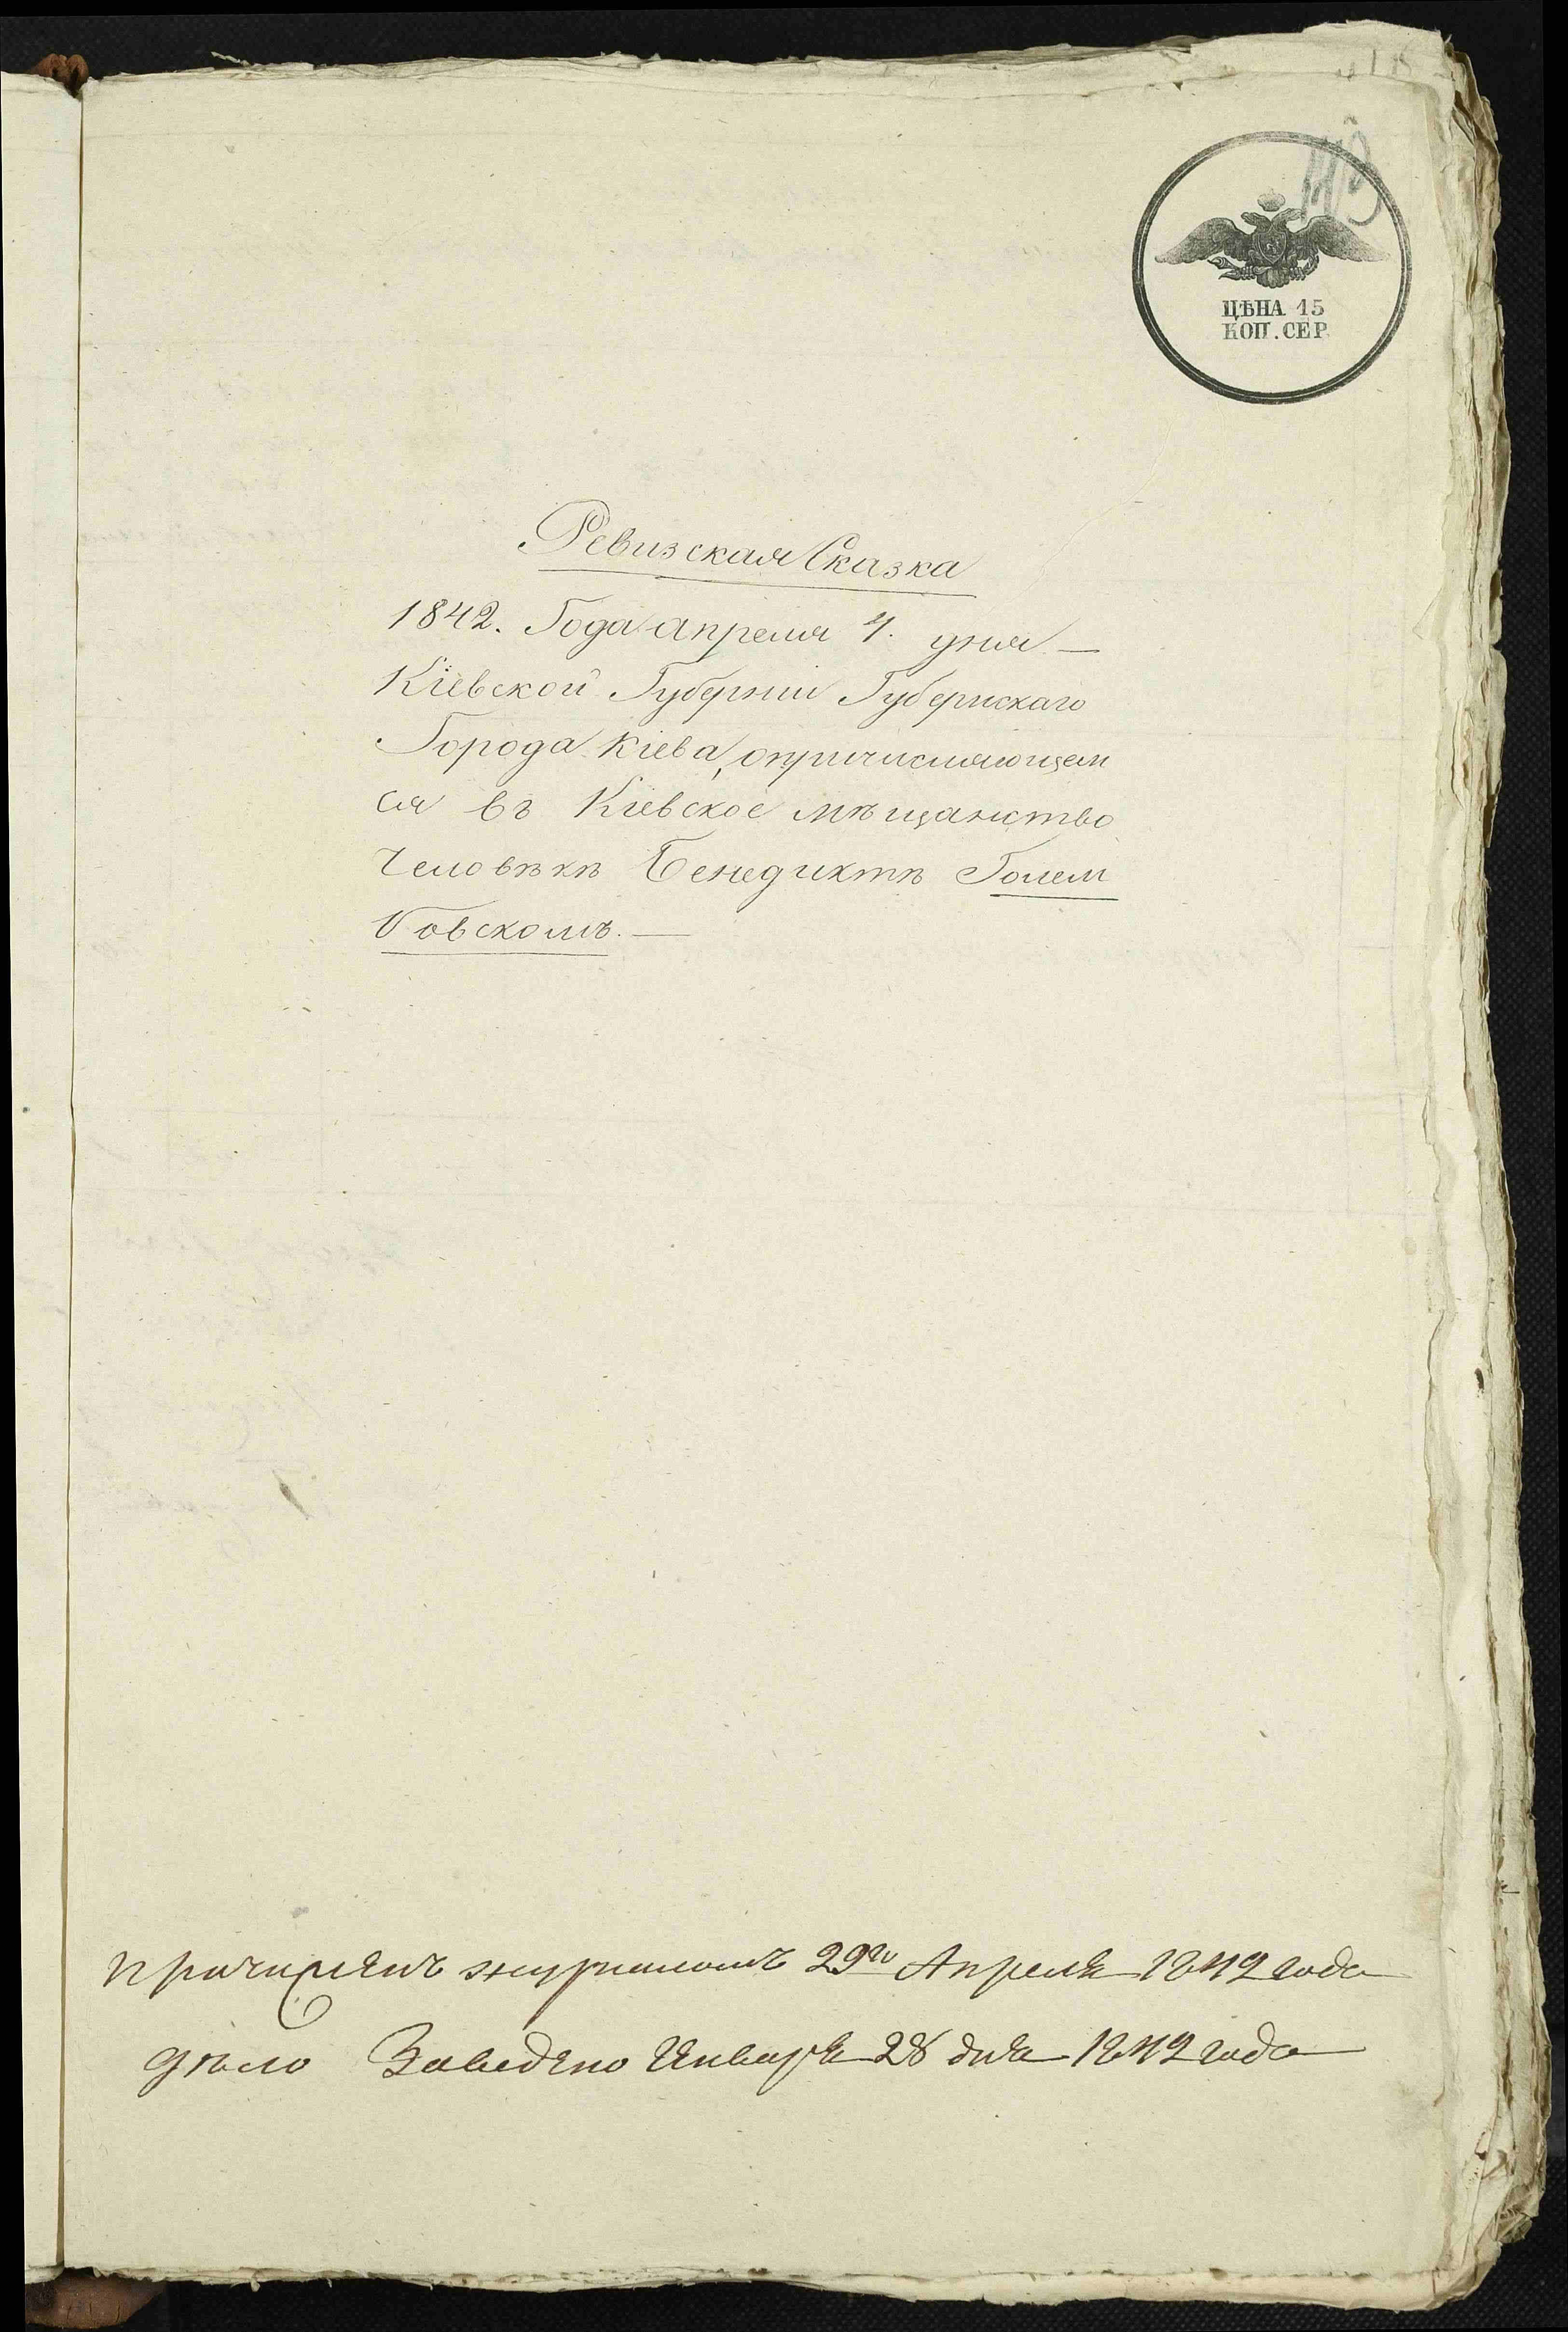 113
ЦѢНА 15
КОП. СЕР.
Ревизская Сказка
1842. Года апреля 4. дня —
Кіевской Губерніи Губернскаго
Города Кіева, опричисляющем
ся въ Кіевское мѣщанство
человѣкѣ Бенедиктѣ Голем
бовскомъ. —
Причисленъ журналомъ 29го Апреля 1842 года
дѣло Заведено Января 28 дня 1842 года